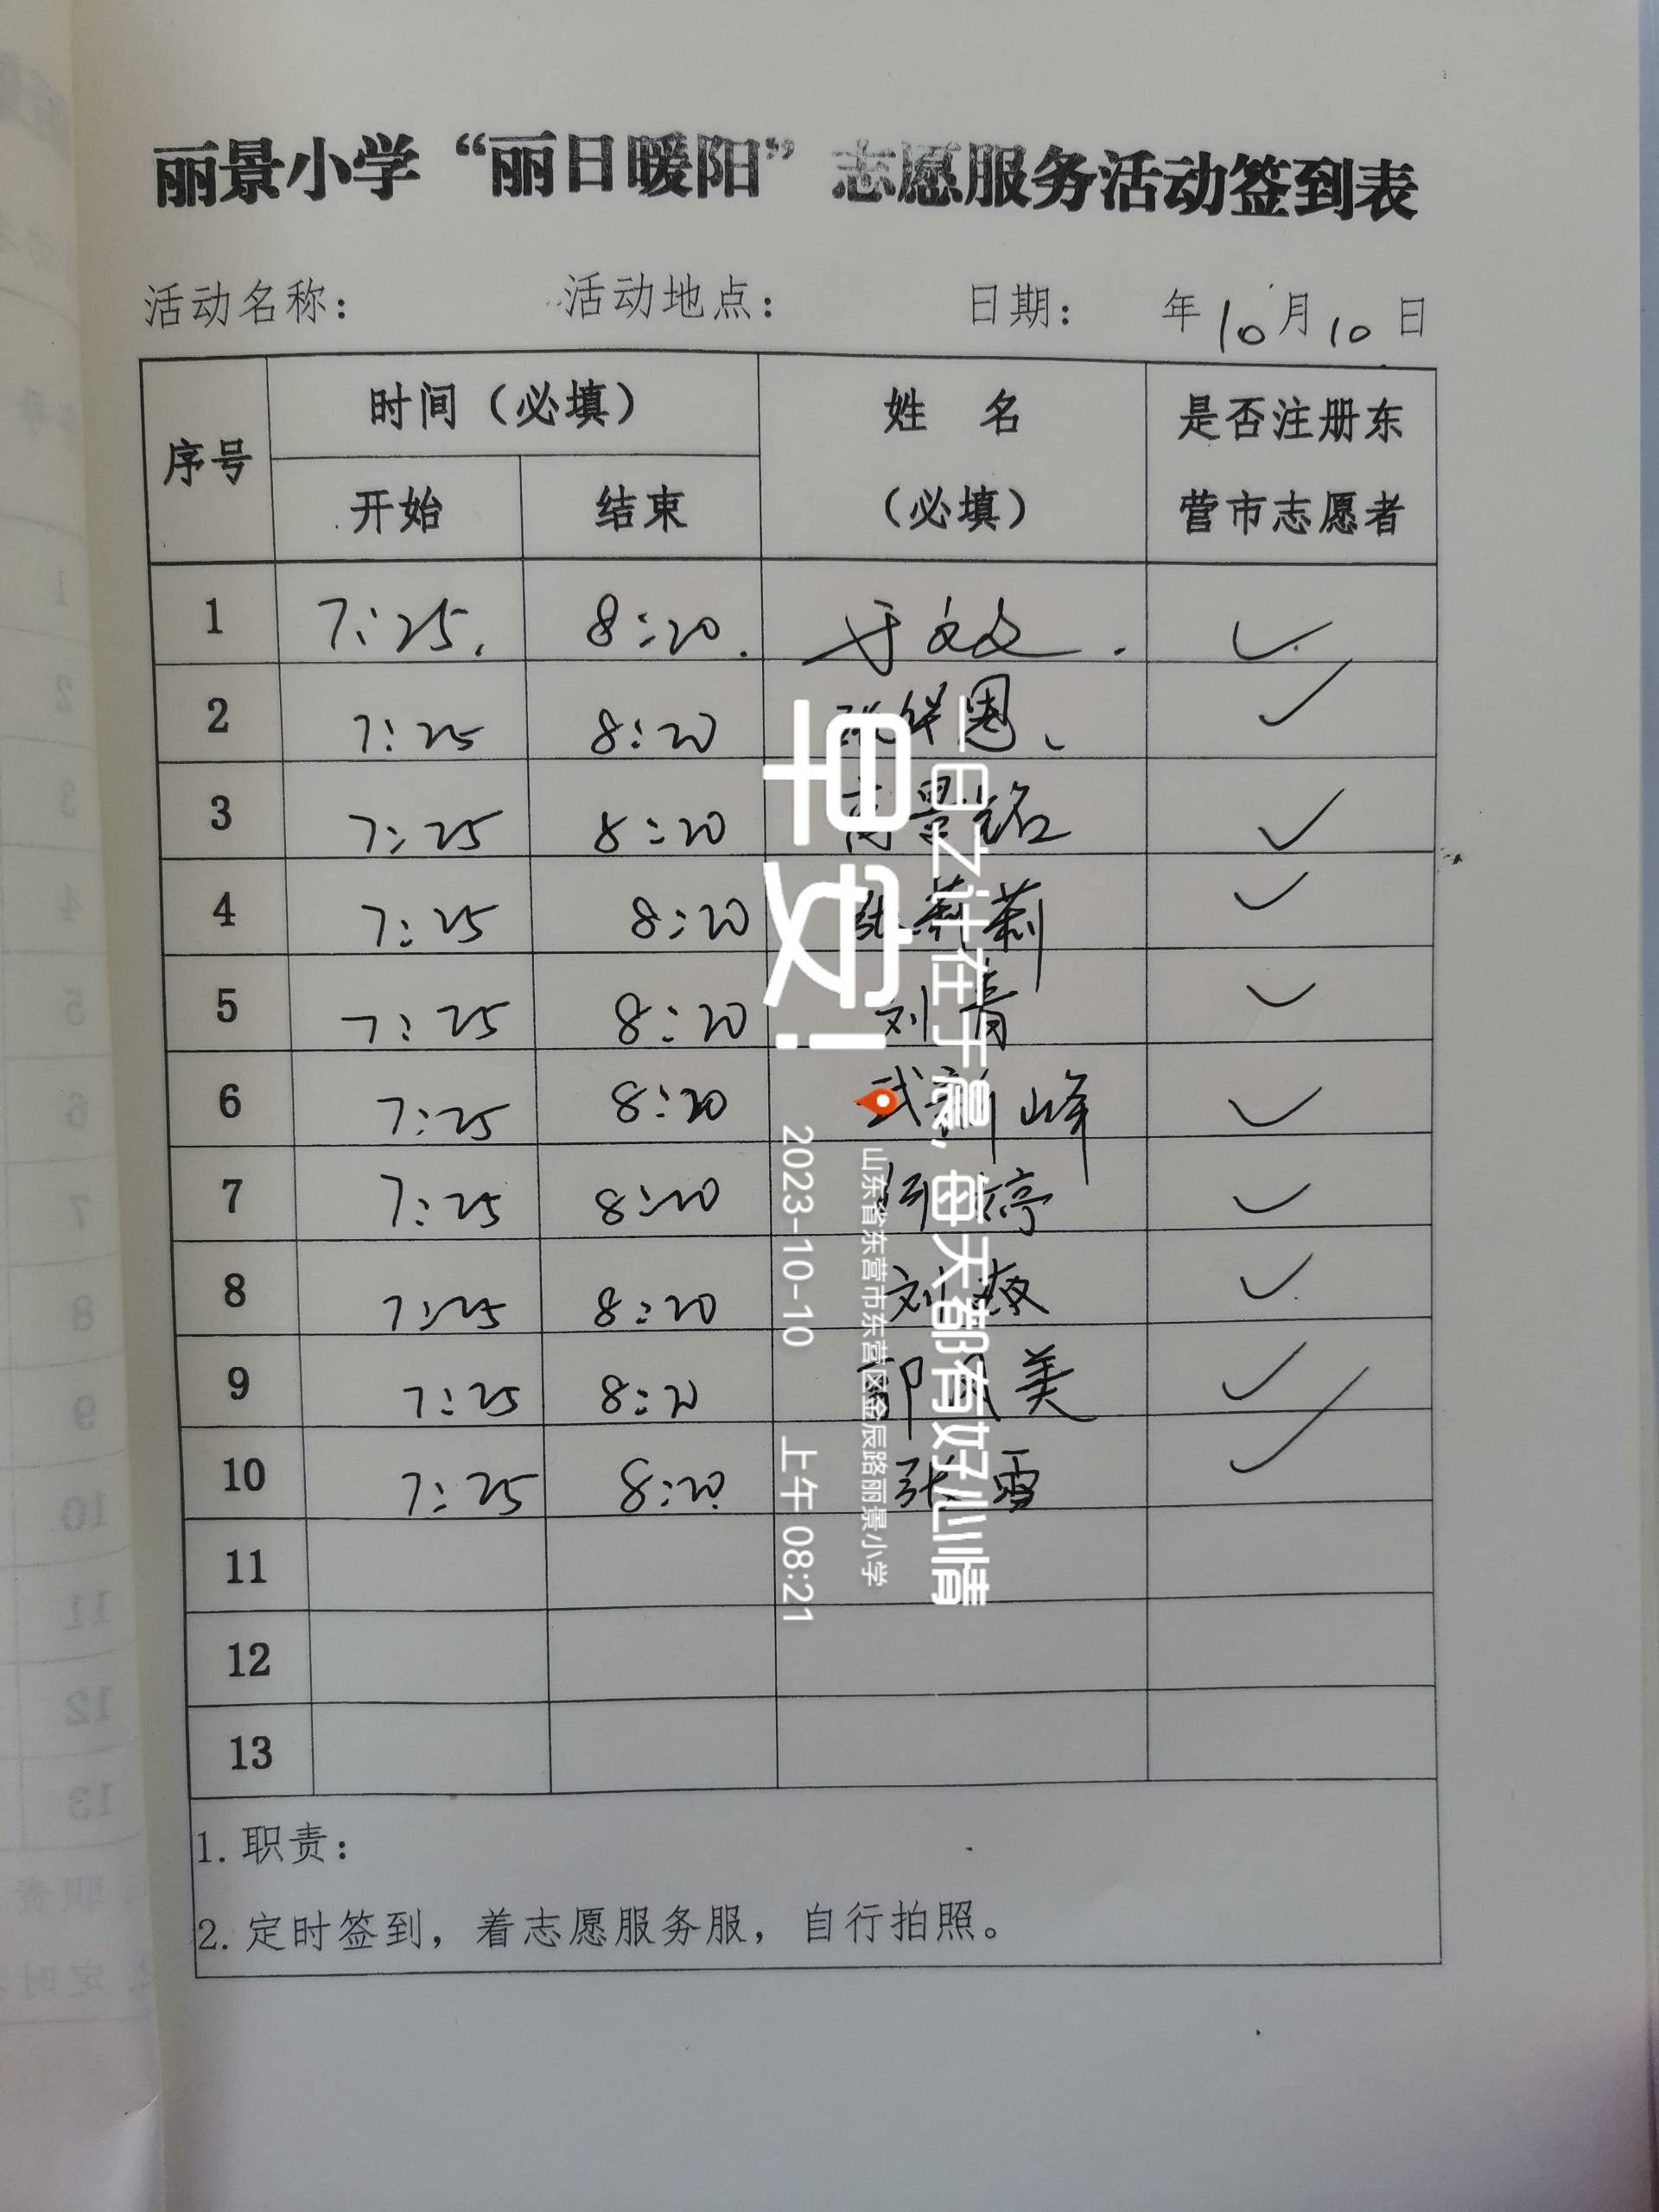 丽景小学“丽日暖阳”志愿服务活动签到表
活动名称： 活动地点： 日期： 年10月10日
序号 时间（必填） 姓 名（必填） 是否注册东营市志愿者
开始 结束
1 7:25. 8:20. 于文文. ✓
2 7:25 8:20 ✓
3 7:25 8:20 ✓
4 7:25 8:20 张莉莉 ✓
5 7:25 8:20 刘青 ✓
6 7:25 8:20 武新峰 ✓
7 7:25 8:20 婷 ✓
8 7:25 8:20 刘 ✓
9 7:25 8:20 美 ✓
10 7:25 8:20 张雪 ✓
11
12
13
1.职责：
2.定时签到，着志愿服务服，自行拍照。
一日之计在于晨,每天都有好心情
早安!
山东省东营市东营区金辰路丽景小学
2023-10-10 上午08:21